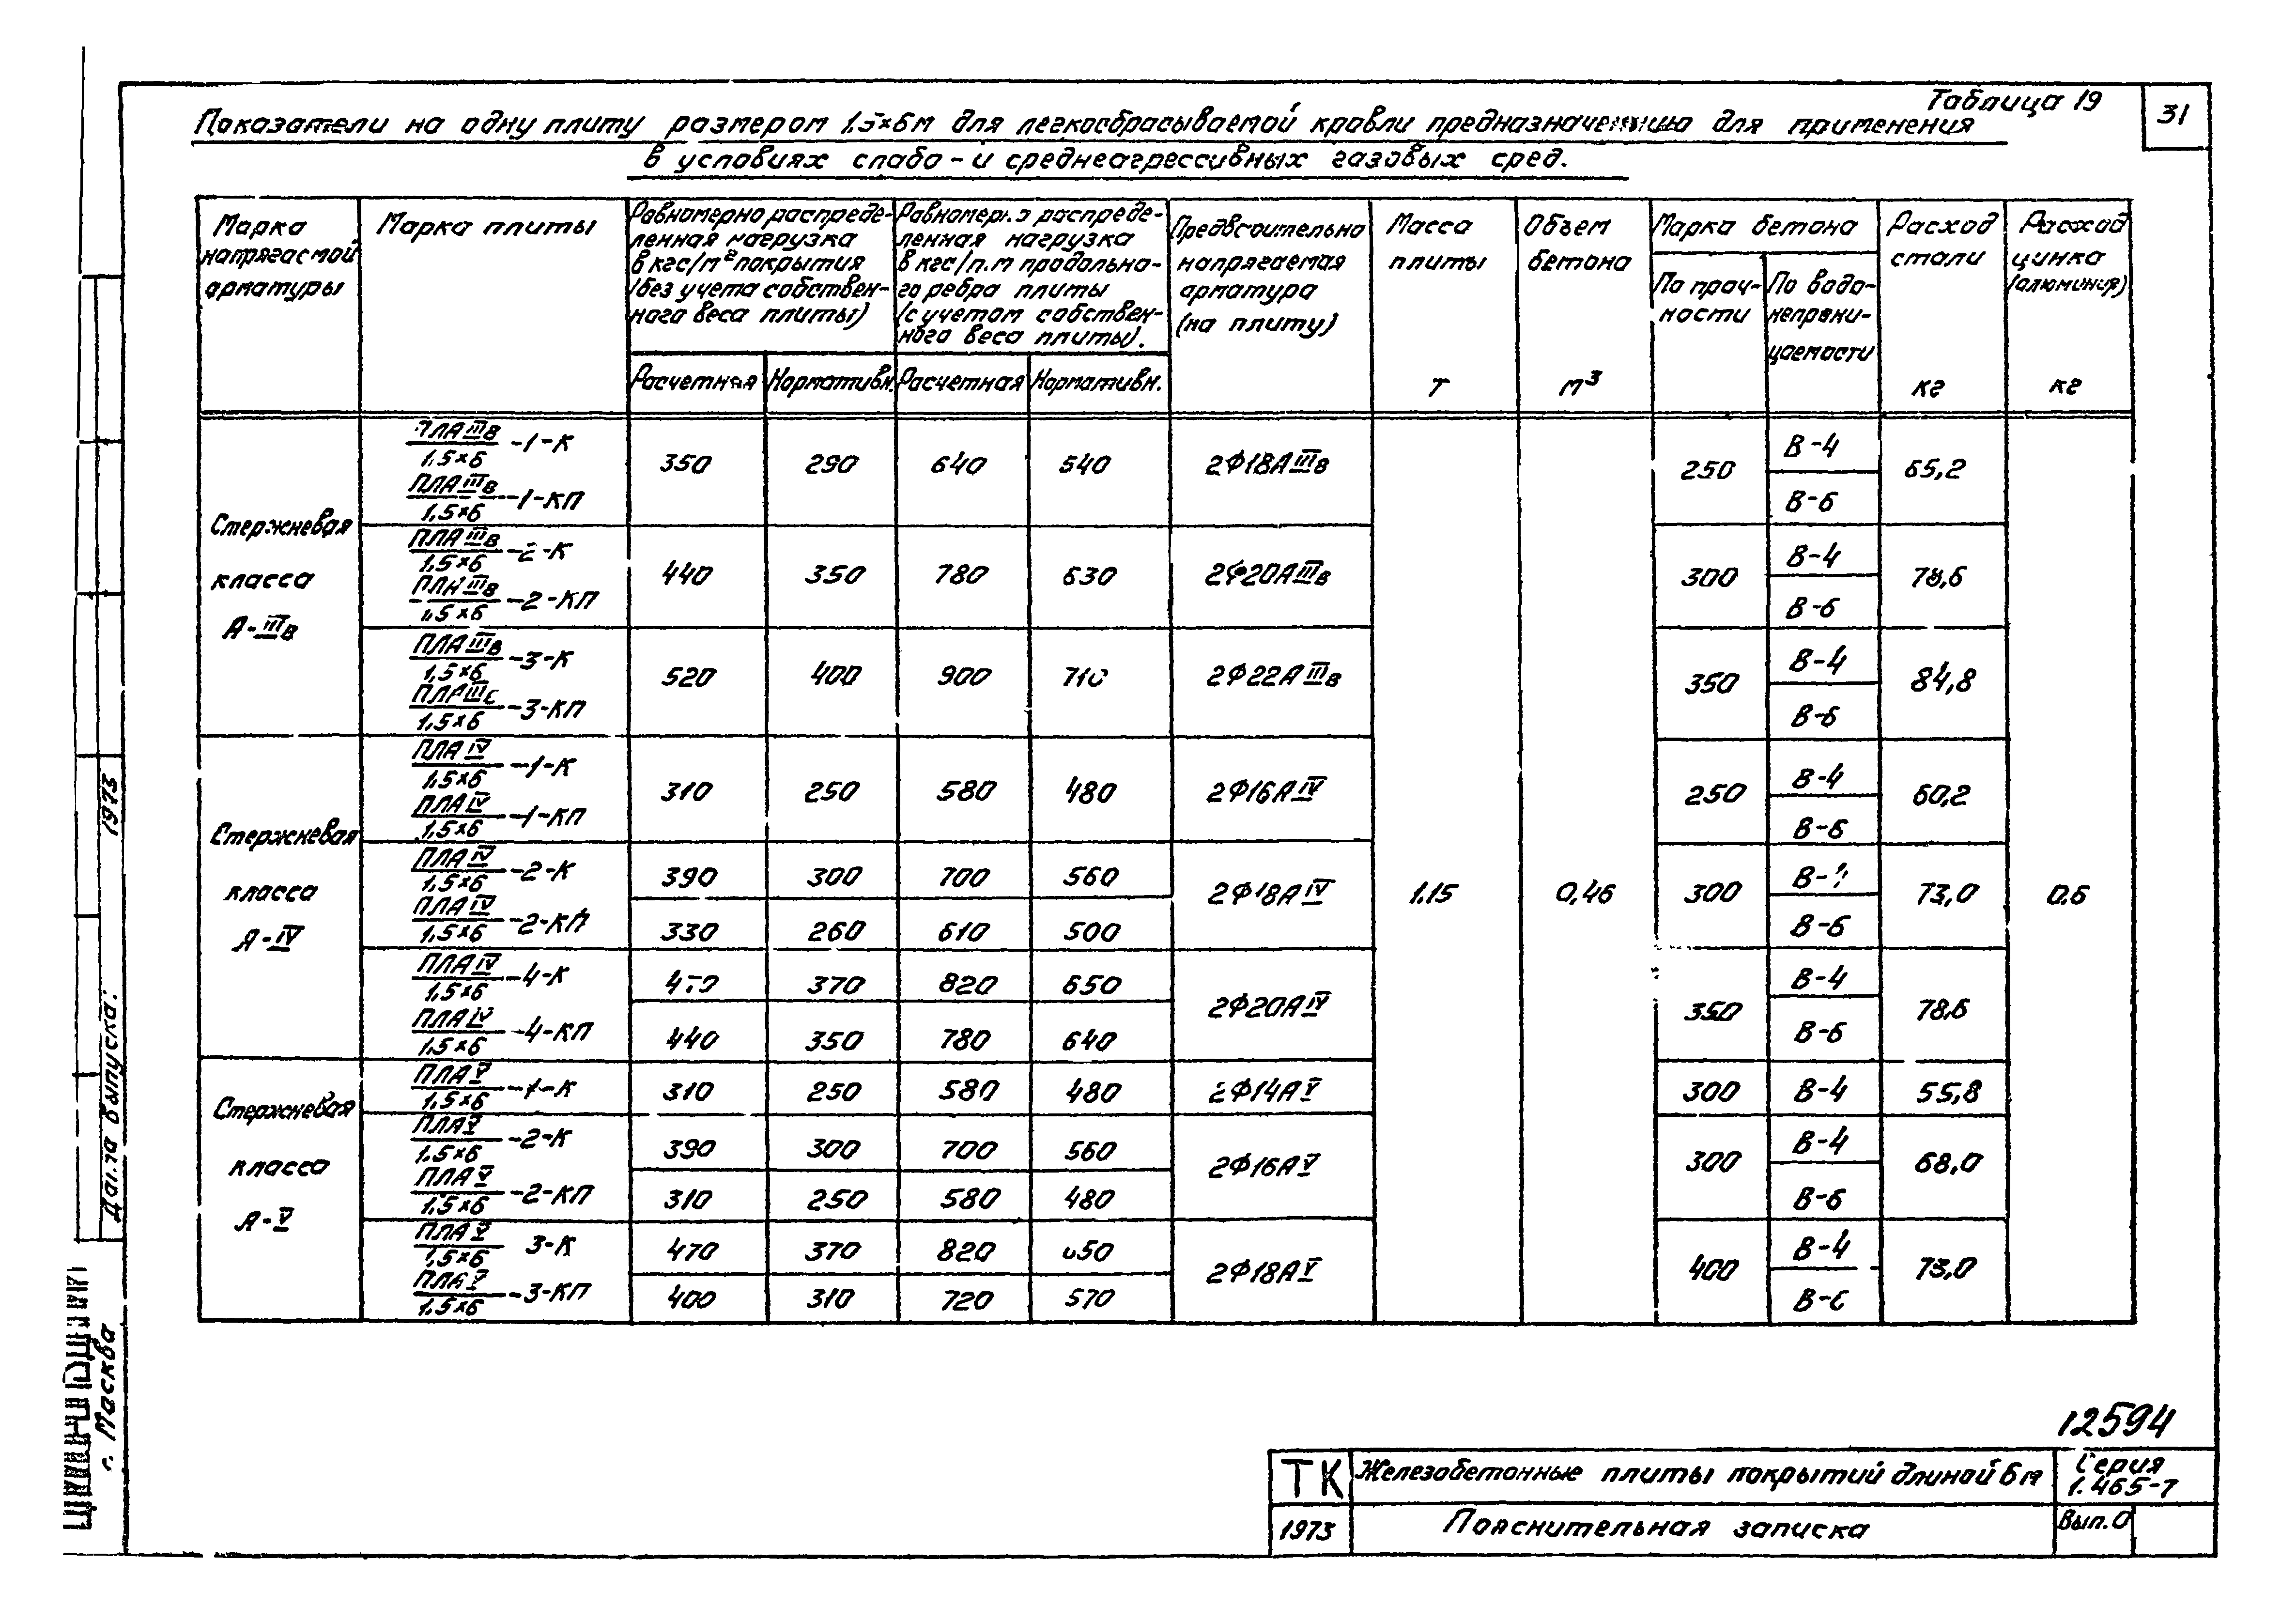 Таблица 19
31
Показатели на одну плиту размером 1,5×6м для легкосбрасываемой кровли для применения
в условиях слабо-и среднеагрессивных газовых сред.
Марка напрягаемой арматуры
Марка плиты
Равномерно распределенная нагрузка в кгс/м² покрытия (без учета собственного веса плиты)
Равномерно распределенная нагрузка в кгс/п.м продольного ребра плиты (с учетом собственного веса плиты).
Предварительно напрягаемая арматура (на плиту)
Масса плиты
Объем бетона
Марка бетона
Расход стали
Расход цинка (алюминия)
По прочности
По водонепроницаемости
Расчетная Нормативн. Расчетная Нормативн.
т м³ кг кг
Стержневая класса А-IIIв
ПЛАIIIв/1,5×6 -1-К
ПЛАIIIв/1,5×6 -1-КП
350 290 640 540 2Ф18АIIIв 250 В-4 В-6 65,2
ПЛАIIIв/1,5×6 -2-К
ПЛАIIIв/1,5×6 -2-КП
440 350 780 630 2Ф20АIIIв 300 В-4 В-6 78,6
ПЛАIIIв/1,5×6 -3-К
ПЛАIIIв/1,5×6 -3-КП
520 400 900 710 2Ф22АIIIв 350 В-4 В-6 84,8
Стержневая класса А-IV
ПЛАIV/1,5×6 -1-К
ПЛАIV/1,5×6 -1-КП
310 250 580 480 2Ф16АIV 250 В-4 В-6 60,2
ПЛАIV/1,5×6 -2-К 390 300 700 560
ПЛАIV/1,5×6 -2-КП 330 260 610 500
2Ф18АIV 1.15 0,46 300 В-6 73,0 0.6
ПЛАIV/1,5×6 -4-К 370 820 650
ПЛАIV/1,5×6 -4-КП 440 350 780 640
2Ф20АIV 350 В-4 В-6 78,6
Стержневая класса А-V
ПЛАV/1,5×6 -1-К 310 250 580 480 2Ф14АV 300 В-4 55,8
ПЛАV/1.5×6 -2-К 390 300 700 560
ПЛАV/1,5×6 -2-КП 310 250 580 480
2Ф16АV 300 В-4 В-6 68,0
ПЛАV/1,5×6 3-К 470 370 820 650
ПЛАV/1.5×6 -3-КП 400 310 720 570
2Ф18АV 400 В-4 В-6 73,0
Дата выпуска: 1973
г. Москва
12594
ТК Железобетонные плиты покрытий длиной 6м Серия 1.465-7
1973 Пояснительная записка Вып.0